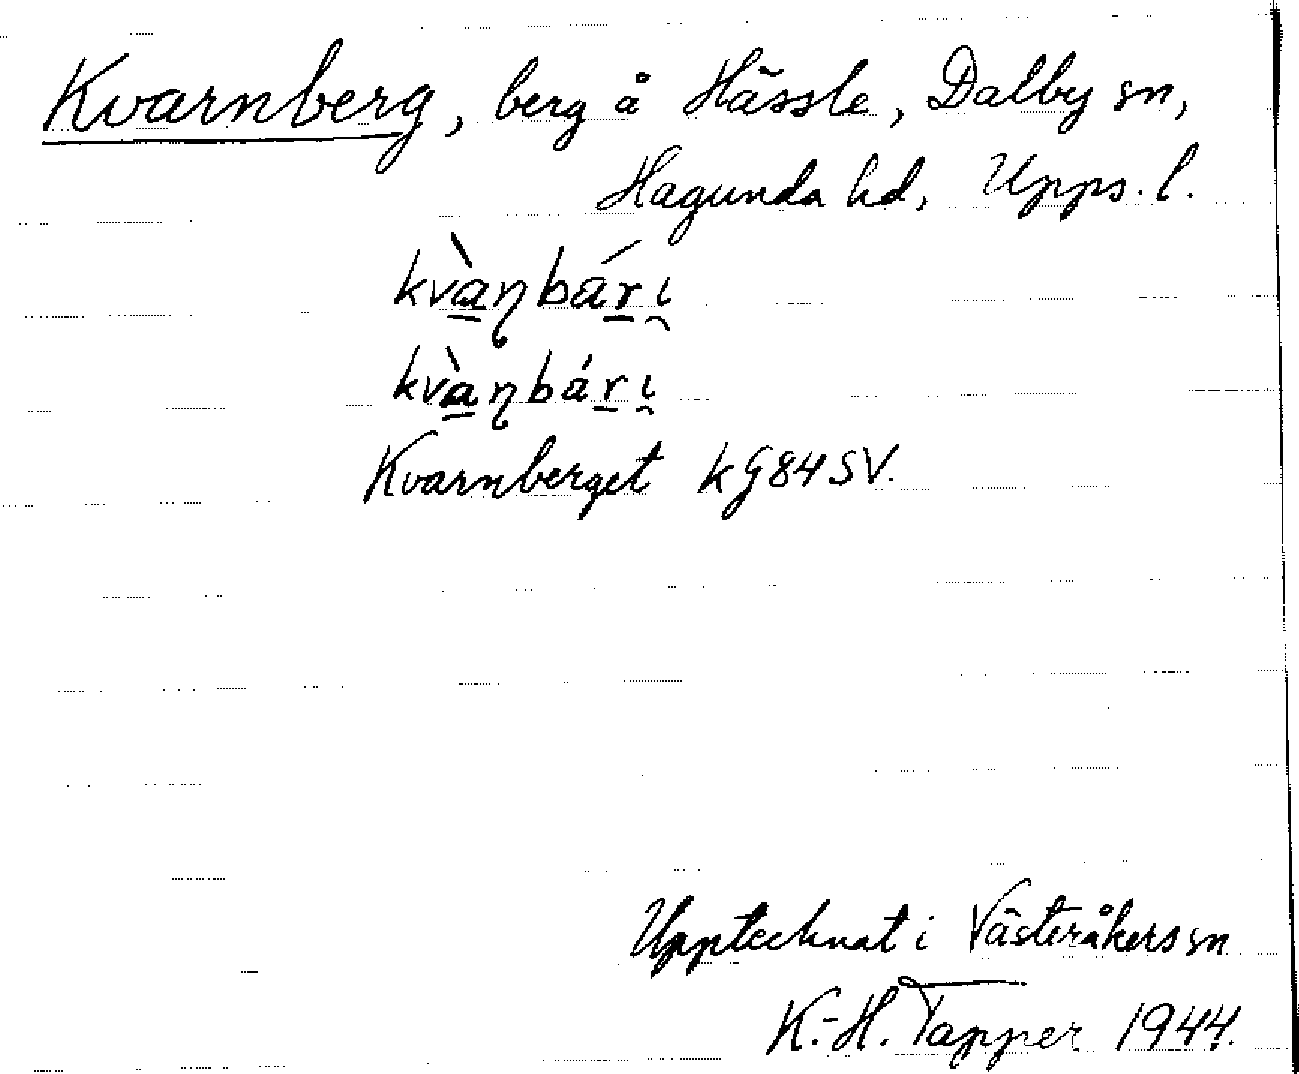 Kvarnberg, berg å Hässle, Dalby sn,
Hagunda hd, Upps. l.
kvàɳbárɩ
kvàɳbárɩ
Kvarnberget kG84SV.
Upptecknat i Västeråkers sn
K.-H. Tapper 1944.